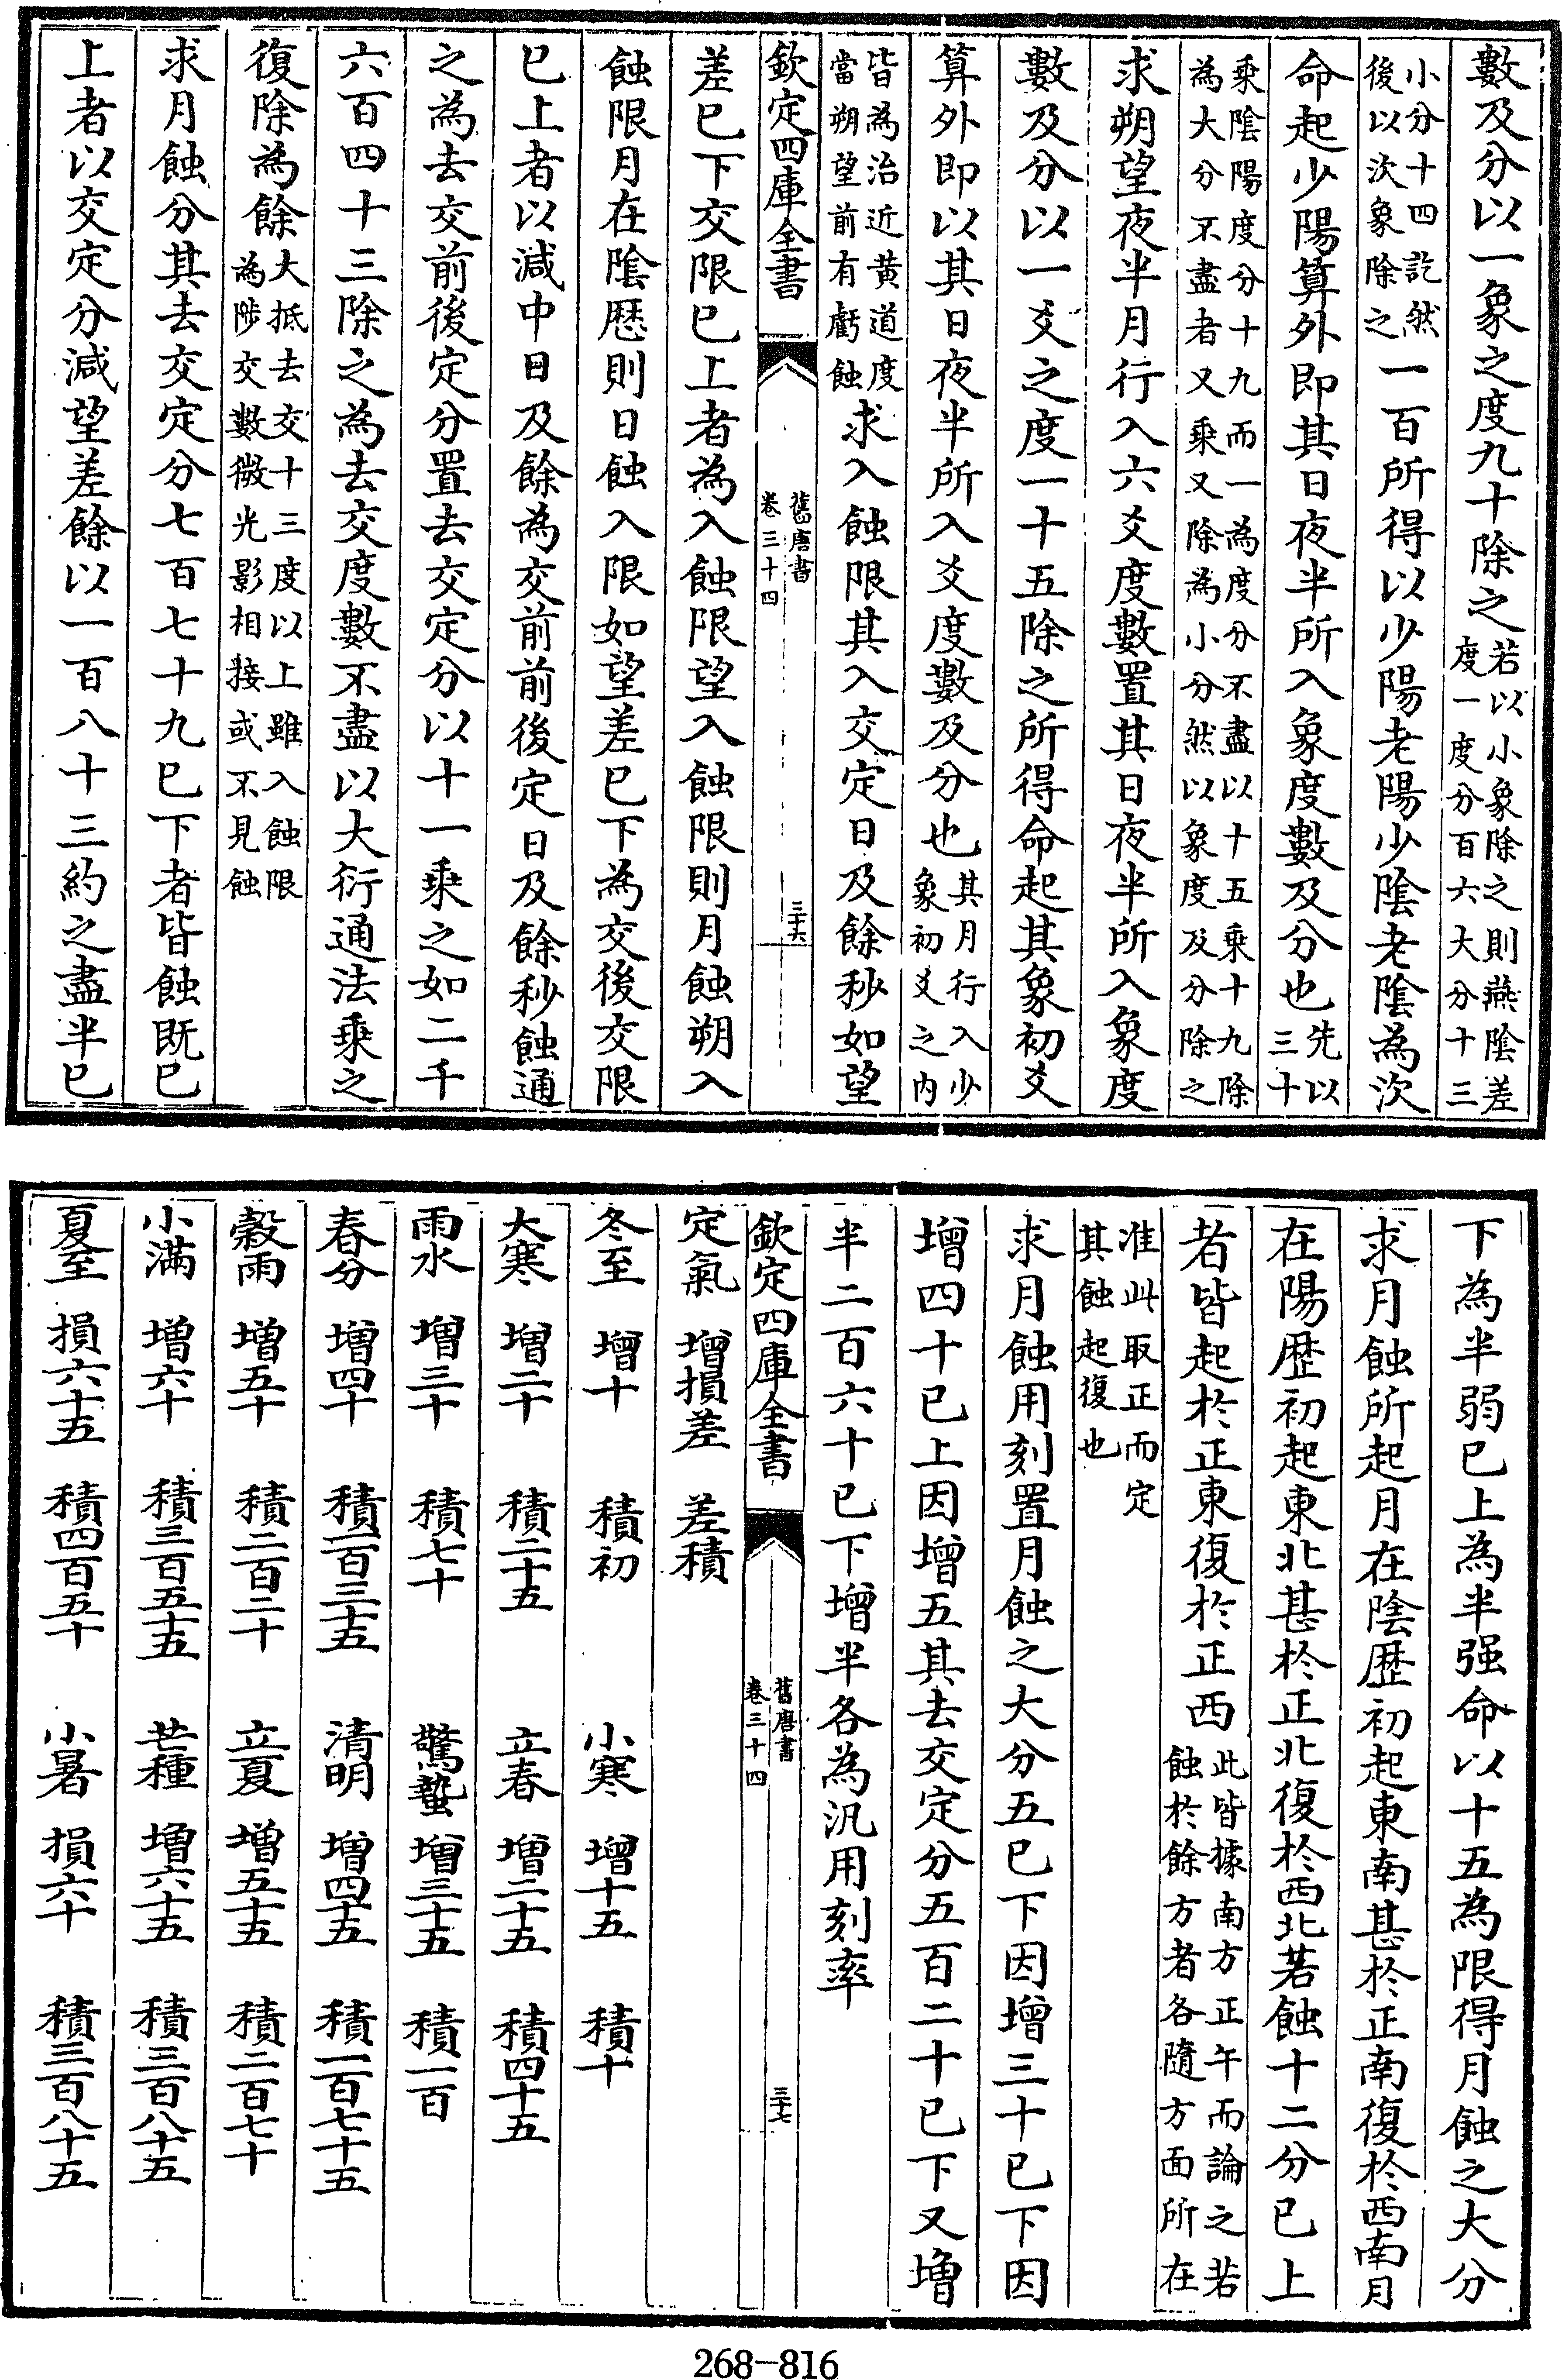 數及分以一象之度九十除之若以小象除之則燕陰差度一度分百六大分十三
小分十四訖然後以次象除之一百所得以少陽老陽少陰老陰為次
命起少陽算外即其日夜半所入象度數及分也先以三十
乘陰陽度分十九而一為度分不盡以十五乘十九除為大分不盡者又乘又除為小分然以象度及分除之
求朔望夜半月行入六爻度數置其日夜半所入象度
數及分以一爻之度一十五除之所得命起其象初爻
算外即以其日夜半所入爻度數及分也其月行入少象初爻之內
皆為治近黃道度當朔望前有虧蝕求入蝕限其入交定日及餘秒如望
欽定四庫全書
舊唐書
卷三十四
三十六
差已下交限已上者為入蝕限望入蝕限則月蝕朔入
蝕限月在陰歷則日蝕入限如望差已下為交後交限
已上者以減中日及餘為交前前後定日及餘秒蝕通
之為去交前後定分置去交定分以十一乘之如二千
六百四十三除之為去交度數不盡以大衍通法乘之
復除為餘大抵去交十三度以上雖入蝕限為陟交數微光影相接或不見蝕
求月蝕分其去交定分七百七十九已下者皆蝕既已
上者以交定分減望差餘以一百八十三約之盡半已
下為半弱已上為半强命以十五為限得月蝕之大分
求月蝕所起月在陰歷初起東南甚於正南復於西南月
在陽歷初起東北甚於正北復於西北若蝕十二分已上
者皆起於正東復於正西此皆據南方正午而論之若蝕於餘方者各隨方面所在
准此取正而定其蝕起復也
求月蝕用刻置月蝕之大分五已下因增三十已下因
增四十已上因增五其去交定分五百二十已下又增
半二百六十已下增半各為汎用刻率
欽定四庫全書
舊唐書
卷三十四
三十七
定氣 增損差 差積
冬至 增十 積初 小寒 增十五 積十
大寒 增二十 積二十五 立春 增二十五 積四十五
雨水 增三十 積七十 驚蟄 增三十五 積一百
春分 增四十 積一百三十五 清明 增四十五 積一百七十五
穀雨 增五十 積二百二十 立夏 增五十五 積二百七十
小滿 增六十 積三百五十五 芒種 增六十五 積三百八十五
夏至 損六十五 積四百五十 小暑 損六十 積三百八十五
268-816